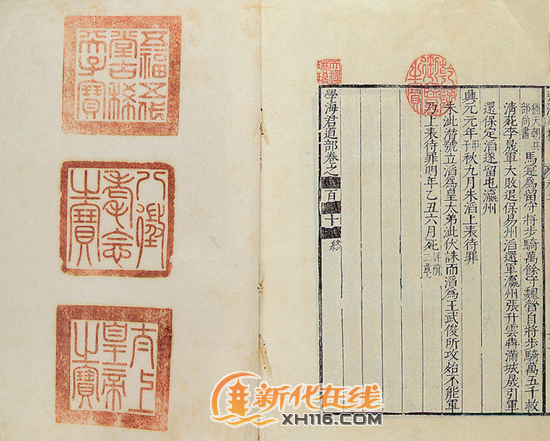 猶天朝兵
部尚書
馬寔為留守將步騎萬餘守魏營自將步騎萬五千救
清苑李晟軍大敗退保易州滔還軍瀛州張升雲奔滿城晟引軍
還保定滔遂留屯瀛州
興元元年甲子秋九月朱滔上表待罪
朱泚潛號立滔為皇太弟泚伏誅而滔為王武俊所攻殆不能軍
乃上表待罪明年乙丑六月死
學海君道部卷之百十 終
乾隆御覽之寶
天祿琳琅
五福五代堂古稀天子寶
八徵耄念之寶
太上皇帝之寶
新代在线
XH116.COM